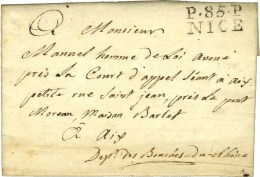 P.85.P
NICE
A Monsieur
Manuel homme de Loi avoué
près la Court d'appel Séant à aix
petite rue Saint jean, près le pt
Moreau, Maison Barlet
A Aix
Dept. des Bouches-du-rhône